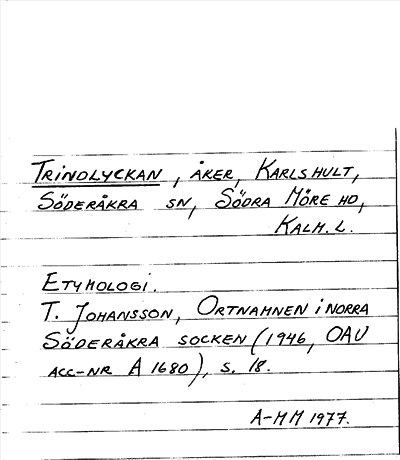 TRINDLYCKAN, ÅKER, KARLSHULT,
SÖDERÅKRA SN, SÖDRA MÖRE HD,
KALM. L.
ETYMOLOGI.
T. JOHANSSON, ORTNAMNEN I NORRA
SÖDERÅKRA SOCKEN (1946, OAU
ACC-NR A 1680), S. 18.
A-MM 1977.